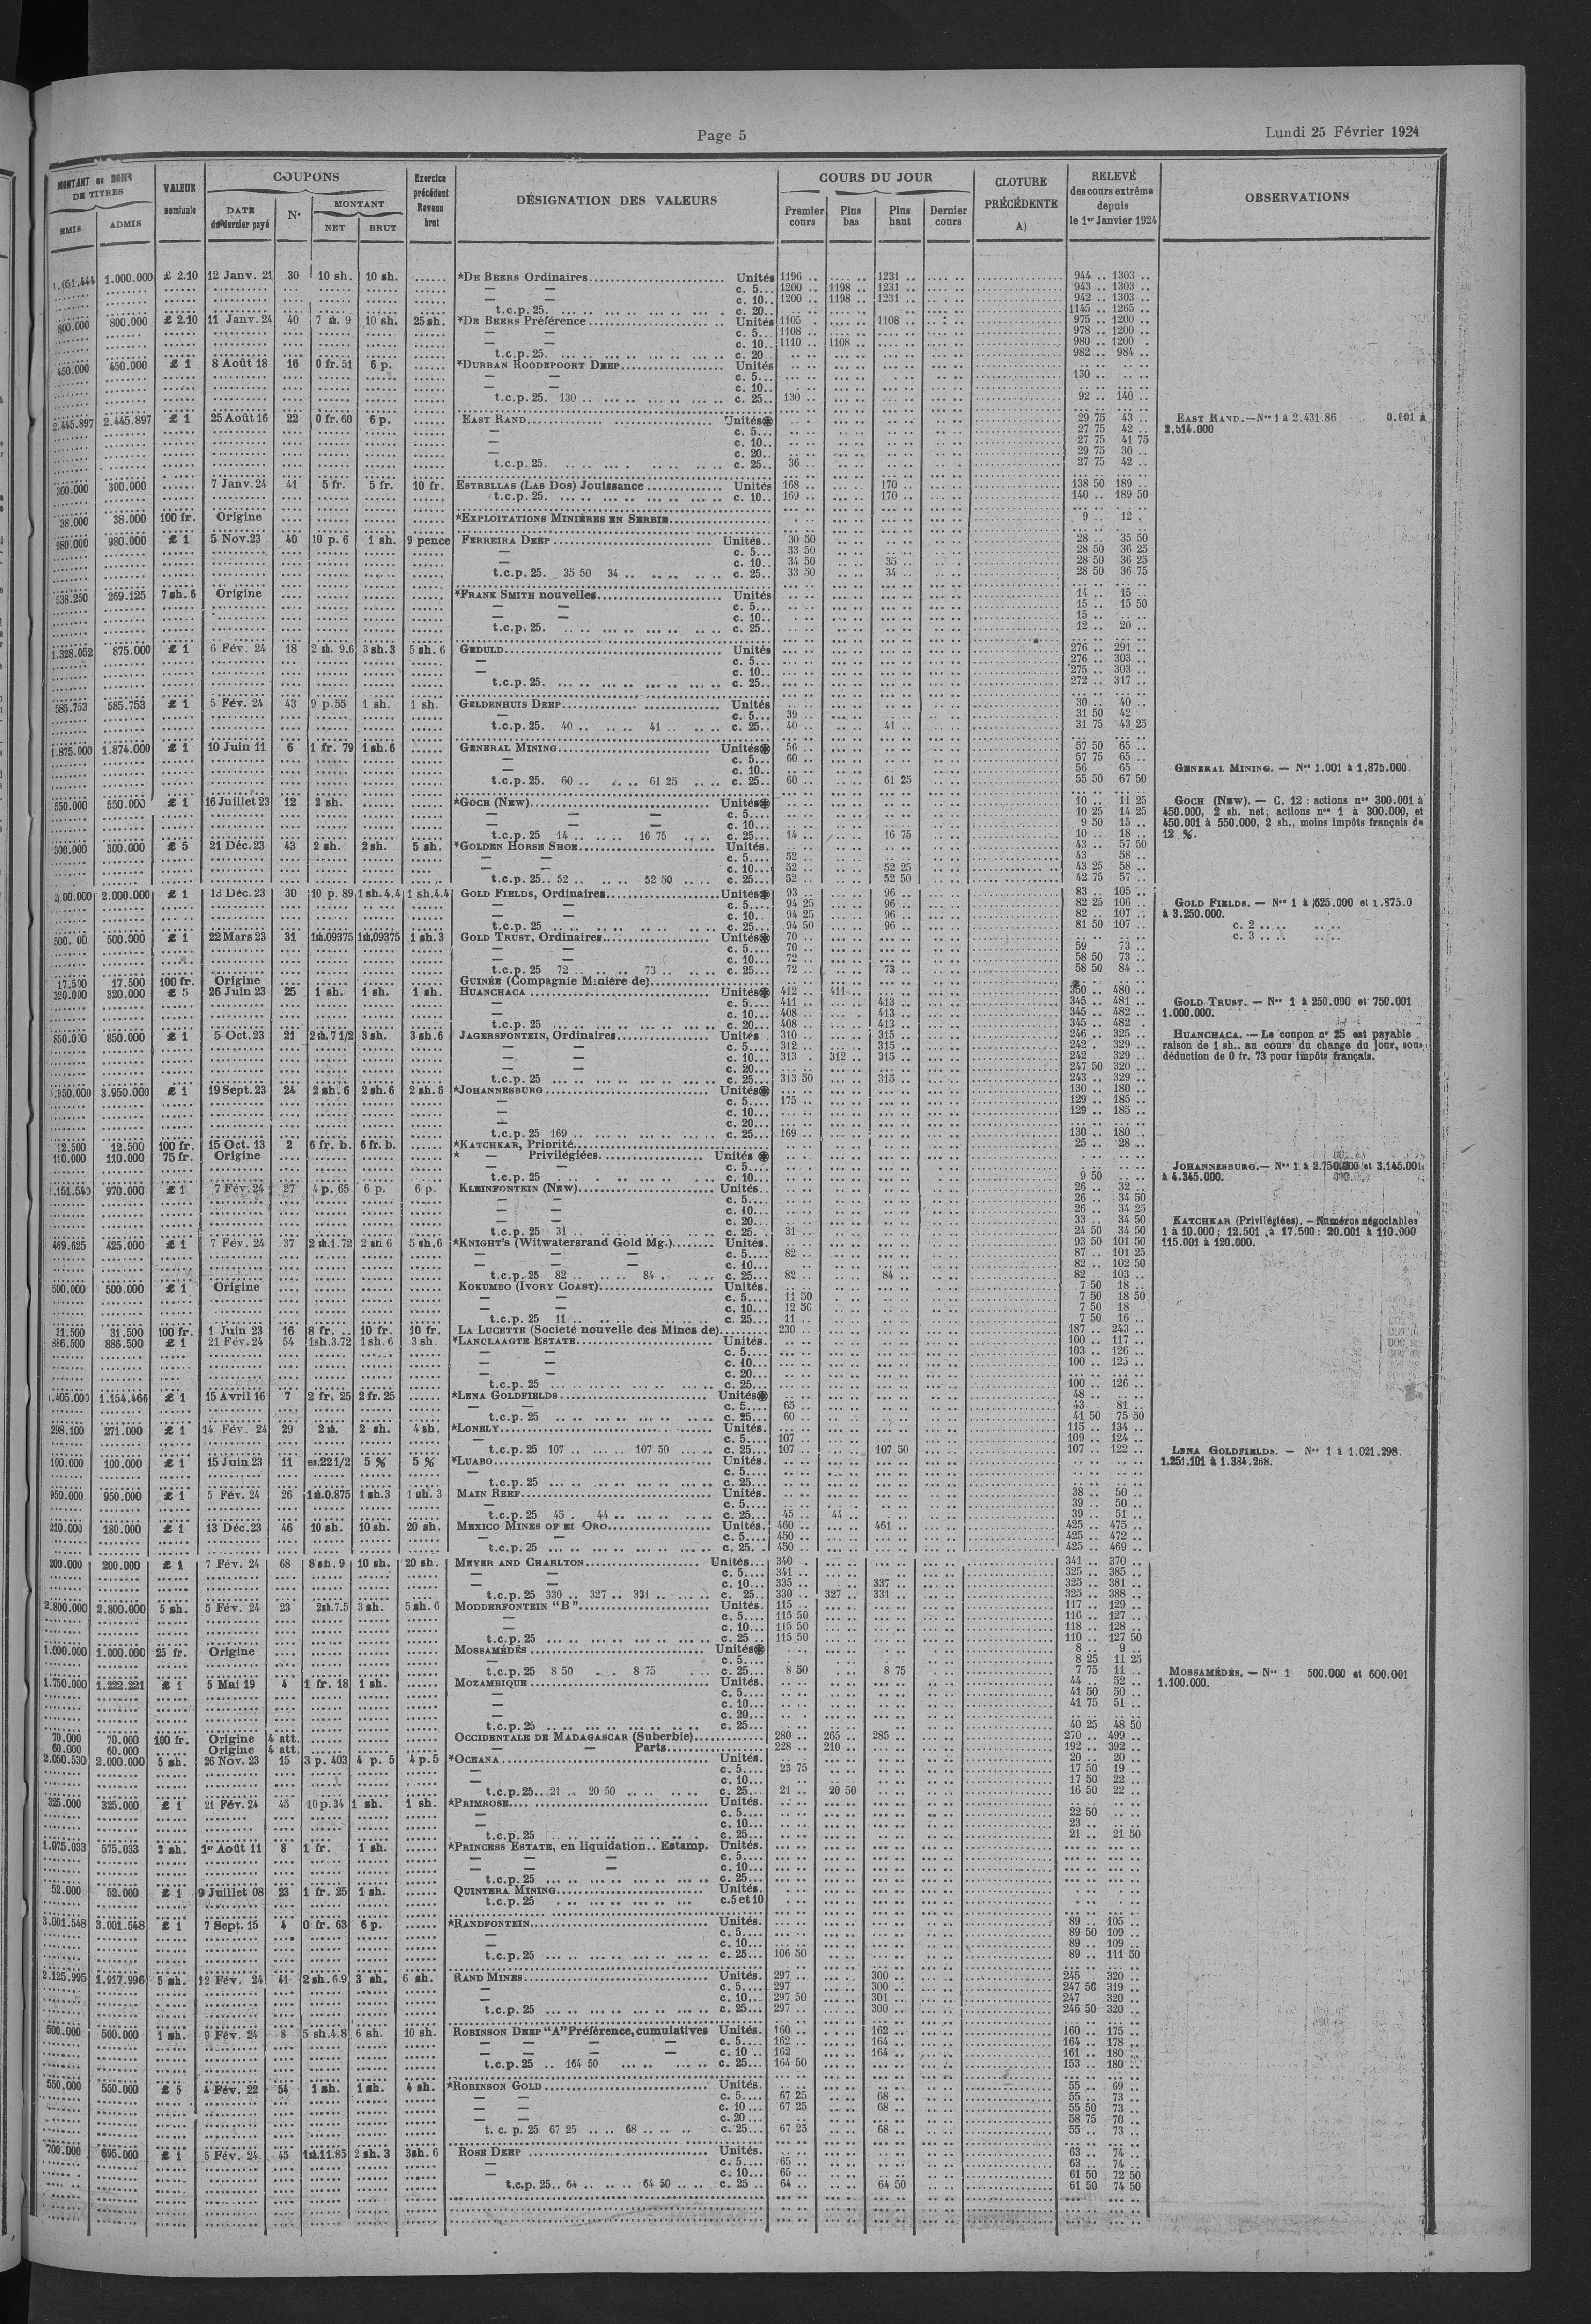 Page 5
Lundi 25 Février 1924
MONTANT ou NOMB. DE TITRES
VALEUR nominale
COUPONS
Exercice précédent Revenu brut
DÉSIGNATION DES VALEURS
COURS DU JOUR
CLOTURE PRÉCÉDENTE A)
RELEVÉ des cours extrême depuis le 1er Janvier 1924
OBSERVATIONS
EMIS ADMIS
DATE du dernier payé
N°
MONTANT
NET BRUT
Premier cours
Plus bas
Plus haut
Dernier cours
1.000.000 £ 2.10 12 Janv. 21 30 10 sh. 10 sh. ...... *DE BEERS Ordinaires Unités 1196 .. 1231 .. 944 .. 1303 ..
— — c. 5... 1200 .. 1198 .. 1231 .. 943 .. 1303 ..
— — c. 10.. 1200 .. 1198 .. 1231 .. 942 .. 1303 ..
t.c.p. 25. c. 20.. 1145 .. 1265 ..
800.000 800.000 £ 2.10 11 Janv. 24 40 7 sh. 9 10 sh. 25 sh. *DE BEERS Préférence Unités 1105 .. 1108 .. 975 .. 1200 ..
— — c. 5... 1108 .. 978 .. 1200 ..
— — c. 10.. 1110 .. 1108 .. 980 .. 1200 .
t.c.p. 25. c. 20.. 982 .. 984 ..
450.000 450.000 £ 1 8 Août 18 16 0 fr. 51 6 p. ...... *DURBAN ROODEPOORT DEEP Unités
— — c. 5... 130 ..
— — c. 10..
t.c.p. 25. 130 .. c. 25.. 130 .. 92 .. 140 ..
2.445.897 2.445.897 £ 1 25 Août 16 22 0 fr. 60 6 p. ...... EAST RAND Unités 29 75 43 .. EAST RAND.—Nos 1 à 2.431.86
— c. 5... 27 75 42 .. 2.514.000
— c. 10.. 27 75 41 75
— c. 20.. 29 75 30 ..
t.c.p. 25. c. 25.. 36 .. 27 75 42 ..
300.000 300.000 ...... 7 Janv. 24 41 5 fr. 5 fr. 10 fr. ESTRELLAS (LAS DOS) Jouissance Unités 168 .. 170 .. 138 50 189 ..
t.c.p. 25. c. 10.. 169 .. 170 .. 140 .. 189 50
38.000 38.000 100 fr. Origine *EXPLOITATIONS MINIÈRES EN SERBIE 9 .. 12 .
980.000 980.000 £ 1 5 Nov. 23 40 10 p. 6 1 sh. 9 pence FERREIRA DEEP Unités.. 30 50 28 .. 35 50
— c. 5... 33 50 28 50 36 25
— c. 10.. 34 50 35 .. 28 50 36 25
t.c.p. 25. 35 50 34 .. c. 25.. 33 50 34 .. 28 50 36 75
538.250 269.125 7 sh. 6 Origine *FRANK SMITH nouvelles Unités 14 .. 15 ..
— — c. 5... 15 .. 15 50
— — c. 10.. 15 ..
t.c.p. 25. c. 25.. 12 .. 20 ..
1.328.052 875.000 £ 1 6 Fév. 24 18 2 sh. 9.6 3 sh. 3 5 sh. 6 GEDULD Unités 276 .. 291 ..
— c. 5... 276 .. 303 ..
— c. 10.. 275 .. 303 ..
t.c.p. 25. c. 25.. 272 .. 317 ..
585.753 585.753 £ 1 5 Fév. 24 43 9 p. 55 1 sh. 1 sh. GELDENHUIS DEEP Unités 30 .. 40 ..
— c. 5... 39 .. 31 50 42 ..
t.c.p. 25. 40 .. 41 .. c. 25.. 40 .. 41 .. 31 75 43 25
1.875.000 1.874.000 £ 1 10 Juin 11 6 1 fr. 79 1 sh. 6 ...... GENERAL MINING Unités 56 .. 57 50 65 ..
— c. 5... 60 .. 57 75 65 ..
— c. 10.. 56 65 .. GENERAL MINING. — Nos 1.001 à 1.875.000.
t.c.p. 25. 60 .. 61 25 c. 25.. 60 .. 61 25 55 50 67 50
550.000 550.000 £ 1 16 Juillet 23 12 2 sh. *GOCH (NEW) Unités 10 .. 11 25 GOCH (NEW). — C. 12 : actions nos 300.001 à
— — — c. 5... 10 25 14 25 450.000, 2 sh. net; actions nos 1 à 300.000, et
— — — c. 10... 9 50 15 .. 450.001 à 550.000, 2 sh., moins impôts français de
t.c.p. 25 14 .. 16 75 c. 25... 14 .. 16 75 10 .. 18 .. 12 %.
300.000 300.000 £ 5 21 Déc. 23 43 2 sh. 2 sh. 5 sh. *GOLDEN HORSE SHOE Unités. 43 .. 57 50
— — c. 5.... 52 .. 43 58 ..
— — c. 10... 52 .. 52 25 43 25 58 ..
t.c.p. 25.. 52 .. 52 50 c. 25... 52 .. 52 50 42 75 57 ..
2.000.000 £ 1 13 Déc. 23 30 10 p. 89 1 sh. 4.4 1 sh. 4.4 GOLD FIELDS, Ordinaires Unités 93 .. 96 .. 83 .. 105 ..
— — c. 5.... 94 25 96 .. 82 25 106 .. GOLD FIELDS. — Nos 1 à 625.000 et 1.875.0
— — c. 10.. 94 25 96 .. 82 .. 107 .. à 3.250.000.
t.c.p. 25 c. 25... 94 50 96 .. 81 50 107 .. c. 2 ..
500.000 £ 1 22 Mars 23 31 1sh.09375 1sh.09375 1 sh. 3 GOLD TRUST, Ordinaires Unités 70 .. c. 3 ..
— — c. 5.... 70 .. 59 73 ..
— — c. 10... 72 .. 58 50 73 ..
t.c.p. 25 72 .. 73 .. c. 25... 72 .. 73 .. 58 50 84 ..
17.500 17.500 100 fr. Origine GUINÉE (Compagnie Minière de)
320.000 320.000 £ 5 26 Juin 23 25 1 sh. 1 sh. 1 sh. HUANCHACA Unités 412 .. 411 .. 350 .. 480 ..
— c. 5.... 411 .. 413 .. 345 .. 481 .. GOLD TRUST. — Nos 1 à 250.000 et 750.001
— c. 10... 408 .. 413 .. 345 .. 482 .. 1.000.000.
t.c.p. 25 c. 20... 408 .. 413 .. 345 .. 482 .
850.000 850.000 £ 1 5 Oct. 23 21 2 sh. 7 1/2 3 sh. 3 sh. 6 JAGERSFONTEIN, Ordinaires Unités . 310 .. 315 .. 246 .. 325 .. HUANCHACA. — Le coupon n° 25 est payable
— — c. 5.... 312 .. 315 .. 242 .. 329 .. raison de 1 sh., au cours du change du jour, sous
— — c. 10... 313 . 312 .. 315 .. 242 .. 329 .. déduction de 0 fr. 73 pour impôts français.
— — c. 20... 247 50 320 ..
t.c.p. 25 c. 25... 313 50 315 .. 243 .. 329 ..
3.950.000 £ 1 19 Sept. 23 24 2 sh. 6 2 sh. 6 2 sh. 6 *JOHANNESBURG Unités 130 .. 180 ..
— c. 5.... 175 .. 129 .. 185 ..
— c. 10... 129 .. 185 ..
— c. 20...
t.c.p. 25 169 .. c. 25... 169 .. 130 .. 180 ..
12.500 12.500 100 fr. 15 Oct. 13 2 6 fr. b. 6 fr. b. ...... *KATCHKAR, Priorité 25 .. 28 ..
110.000 110.000 75 fr. Origine * — Privilégiées Unités
— — c. 5.... JOHANNESBURG.— Nos 1 à 2.750.000 et 3.145.001
t.c.p. 25 c. 10... 9 50 à 4.345.000.
1.151.540 970.000 £ 1 7 Fév. 24 27 4 p. 65 6 p. 6 p. KLEINFONTEIN (NEW) Unités.. 26 .. 32 ..
— — c. 5.... 26 .. 34 50
— — c. 10... 26 .. 34 25
— — c. 20... 33 .. 34 50 KATCHKAR (Privilégiées). — Numéros négociables
t.c.p. 25 31 .. c. 25. 31 .. 24 50 34 50 1 à 10.000; 12.501 à 17.500; 20.001 à 110.000
469.625 425.000 £ 1 7 Fév. 24 37 2 sh.1.72 2 sh 6 5 sh. 6 *KNIGHT'S (Witwatersrand Gold Mg.) Unités. 93 50 101 50 115.001 à 120.000.
— — — c. 5.... 82 .. 87 .. 101 25
— — — c. 10... 82 .. 102 50
t.c.p. 25 82 .. 84 .. c. 25... 82 .. 84 .. 82 .. 103 ..
500.000 500.000 £ 1 Origine KOKUMBO (IVORY COAST) Unités. 7 50 18 ..
— — c. 5.... 11 50 7 50 18 50
— — c. 10... 12 50 7 50 18
t.c.p. 25 11 .. c. 25... 11 .. 7 50 16 ..
31.500 31.500 100 fr. 1 Juin 23 16 8 fr. .. 10 fr. 10 fr. LA LUCETTE (Societé nouvelle des Mines de) 230 .. 187 .. 243 ..
886.500 886.500 £ 1 21 Fév. 24 54 1sh.3.72 1 sh. 6 3 sh. *LANGLAAGTE ESTATE Unités. 100 .. 117 ..
— — c. 5.... 103 .. 126 ..
— — c. 10... 100 .. 125 ..
— — c. 20...
t.c.p. 25 c. 25... 100 .. 126 ..
1.154.466 £ 1 15 Avril 16 7 2 fr. 25 2 fr. 25 ...... *LENA GOLDFIELDS Unités 48 ..
— — c. 5.... 65 .. 43 81 ..
t.c.p. 25 c. 25... 60 .. 41 50 75 50
298.100 271.000 £ 1 14 Fév. 24 29 2 sh. 2 sh. 4 sh. *LONELY Unités. 115 .. 134 ..
— c. 5.... 107 .. 109 .. 124 ..
t.c.p. 25 107 .. 107 50 c. 25... 107 .. 107 50 107 .. 122 .. LENA GOLDFIELDS. — Nos 1 à 1.021.298.
100.000 100.000 £ 1 15 Juin 23 11 es.22 1/2 5 % 5 % *LUABO Unités. 1.251.101 à 1.384.268.
— c. 5....
t.c.p. 25 c. 25...
950.000 950.000 £ 1 5 Fév. 24 26 1sh.0.875 1 sh. 3 1 sh. 3 MAIN REEF Unités. 38 .. 50 ..
— c. 5.... 39 .. 50 ..
t.c.p. 25 45 . 44 .. c. 25... 45 .. 44 .. 39 .. 51 ..
210.000 180.000 £ 1 13 Déc. 23 46 10 sh. 10 sh. 20 sh. MEXICO MINES OF EI ORO Unités. 460 .. 461 .. 425 .. 475 ..
— — c. 5.... 450 .. 425 .. 472 ..
t.c.p. 25 c. 25. 450 .. 425 .. 469 ..
200.000 200.000 £ 1 7 Fév. 24 68 8 sh. 9 10 sh. 20 sh. MEYER AND CHARLTON Unités... 340 341 .. 370 ..
— — c. 5.... 341 .. 325 .. 385 ..
— — c. 10... 335 .. 337 .. 325 .. 381 ..
t.c.p. 25 330 .. 327 .. 331 .. c. 25... 330 .. 327 .. 331 .. 325 .. 388 ..
2.800.000 2.800.000 5 sh. 5 Fév. 24 23 2sh.7.5 3 sh. 5 sh. 6 MODDERFONTEIN "B" Unités. 115 .. 117 .. 129 ..
— c. 5.... 115 50 116 .. 127 ..
— c. 10... 115 50 118 .. 128 ..
t.c.p. 25 c. 25 .. 115 50 110 .. 127 50
1.000.000 1.000.000 25 fr. Origine MOSSAMÉDÈS Unités 8 .. 9 ..
— c. 5.... 8 25 11 25
t.c.p. 25 8 50 8 75 c. 25... 8 50 8 75 7 75 11 .. MOSSAMÉDÈS. — Nos 1 500.000 et 600.001
1.750.000 1.222.221 £ 1 5 Mai 19 4 1 fr. 18 1 sh. ...... MOZAMBIQUE Unités. 44 .. 52 .. 1.100.000.
— c. 5.... 41 50 50 ..
— c. 10... 41 75 51 ..
— c. 20...
t.c.p. 25 c. 25... 40 25 48 50
70.000 70.000 100 fr. Origine 4 att. OCCIDENTALE DE MADAGASCAR (Suberbie) 280 .. 265 .. 285 .. 270 .. 499 ..
60.000 60.000 Origine 4 att. — — Parts 228 .. 210 .. 192 .. 392 ..
2.050.530 2.000.000 5 sh. 26 Nov. 23 15 3 p. 403 4 p. 5 4 p. 5 *OCEANA Unités. 20 .. 20 ..
— c. 5.... 23 75 17 50 19 ..
— c. 10... 17 50 22 ..
t.c.p. 25.. 21 .. 20 50 c. 25... 21 .. 20 50 16 50 22 ..
325.000 325.000 £ 1 21 Fév. 24 45 10 p. 34 1 sh. 1 sh. *PRIMROSE Unités.
— c. 5.... 22 50
— c. 10... 23 ..
t.c.p. 25 c. 25... 21 .. 21 50
1.075.033 575.033 2 sh. 1er Août 11 8 1 fr. 1 sh. ...... *PRINCESS ESTATE, en liquidation.. Estamp. Unités.
— — — c. 5....
— — — c. 10...
t.c.p. 25 c. 25...
52.000 52.000 £ 1 9 Juillet 08 23 1 fr. 25 1 sh. ...... QUINTERA MINING Unités.
t.c.p. 25 c.5 et 10
3.001.548 3.001.548 £ 1 7 Sept. 15 4 0 fr. 63 6 p. ...... *RANDFONTEIN Unités. 89 .. 105 ..
— c. 5.... 89 50 109 ..
— c. 10... 89 .. 109 ..
t.c.p. 25 c. 25... 106 50 89 .. 111 50
2.125.995 1.917.996 5 sh. 12 Fév. 24 41 2 sh. 6.9 3 sh. 6 sh. RAND MINES Unités. 297 .. 300 .. 245 320 ..
— c. 5.... 297 300 .. 247 50 319 ..
— c. 10... 297 50 301 .. 247 320 ..
t.c.p. 25 c. 25... 297 .. 300 .. 246 50 320 ..
500.000 500.000 1 sh. 9 Fév. 24 8 5 sh.4.8 6 sh. 10 sh. ROBINSON DEEP "A" Préférence, cumulatives Unités. 160 .. 162 .. 160 .. 175 ..
— — — — c. 5.... 162 .. 164 .. 164 .. 178 ..
— — — — c. 10 .. 162 164 .. 161 .. 180 ..
t.c.p. 25 .. 164 50 c. 25... 164 50 153 .. 180 ..
550.000 550.000 £ 5 4 Fév. 22 54 1 sh. 1 sh. 4 sh. *ROBINSON GOLD Unités. 55 .. 69 ..
— — c. 5.... 67 25 68 .. 55 .. 73 ..
— — c. 10... 67 25 68 .. 55 50 73 ..
— — c. 20 ... 58 75 70 ..
t. c. p. 25 67 25 .. 68 .. c. 25... 67 25 68 .. 55 .. 73 ..
700.000 695.000 £ 1 5 Fév. 24 45 1sh.11.85 2 sh. 3 3sh. 6 ROSE DEEP Unités. 63 .. 74 ..
— c. 5.... 65 .. 63 .. 74 ..
— c. 10... 65 .. 61 50 72 50
t.c.p. 25.. 64 .. 64 50 c. 25 .. 64 .. 64 50 61 50 74 50